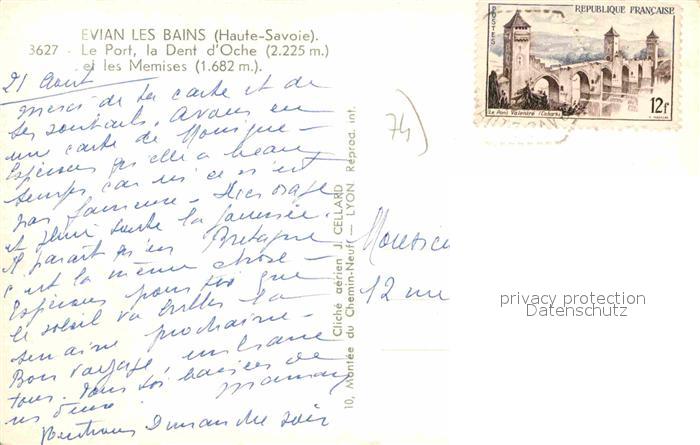 EVIAN LES BAINS (Haute-Savoie).
3627 - Le Port, la Dent d'Oche (2.225 m.)
et les Memises (1.682 m.).
21 Aout
merci de ta carte et de
tes souhaits. Avons eu
une carte de Monique -
Espérons qu'elle a beau
temps car ici ce n'est
pas fameux - Hier orage
et pluie toute la journée.
Il paraît qu'en Bretagne
c'est la même chose -
Espérons pour toi que
le soleil va briller la
semaine prochaine -
Bon voyage,
tous. baisers de
Maman
Rentrons Dimanche soir
10, Montée du Chemin-Neuf - LYON Reprod. int.
Cliché aérien J. CELLARD
74
Monsieur
12 rue
POSTES
RÉPUBLIQUE FRANÇAISE
Le Pont Valentré (Cahors)
12f
privacy protection
Datenschutz